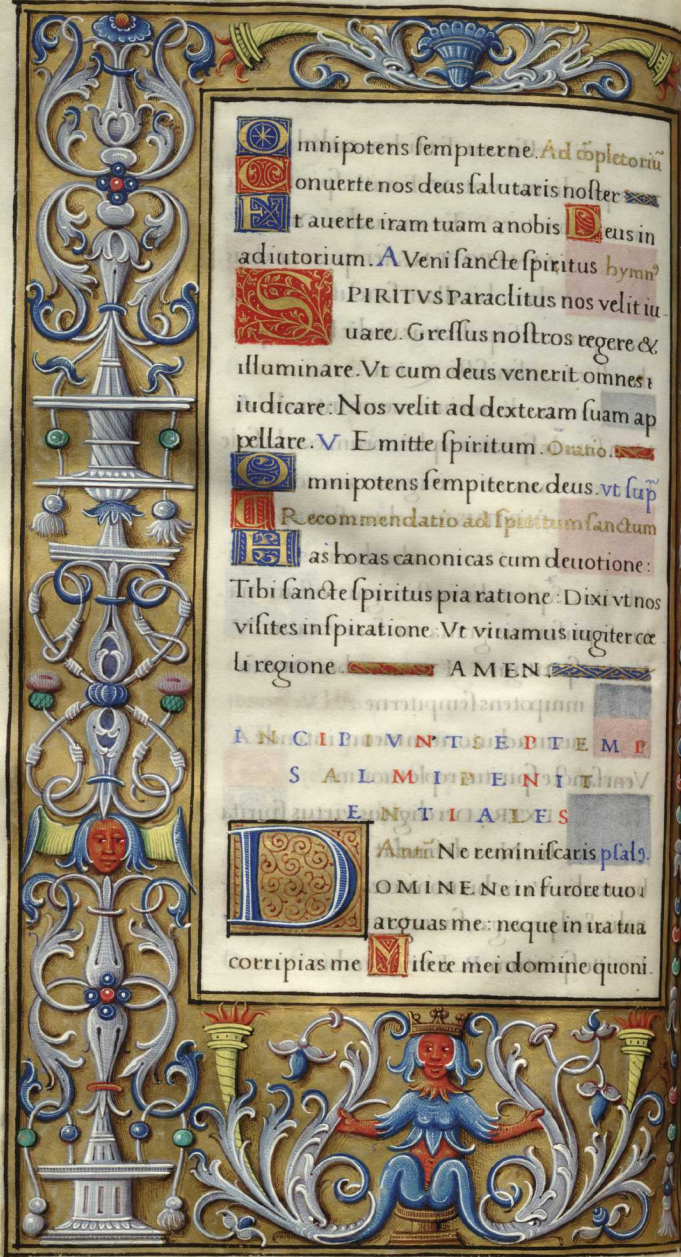 Omnipotens sempiterne. Ad cõpletoriũ
Conuerte nos deus salutaris noster
Et auerte iram tuam a nobis Deus in
adiutorium. A Veni sancte spiritus hymn⁹
SPIRITVS Paraclitus nos velit iu
uare. Gressus nostros regere &
illuminare. Vt cum deus venerit omnes
iudicare: Nos velit ad dexteram suam ap
pellare. V Emitte spiritum. Oratio.
Omnipotens sempiterne deus. vt sup̃
Recommendatio ad spiritum sanctum
Has horas canonicas cum deuotione:
Tibi sancte spiritus pia ratione: Dixi vt nos
visites inspiratione: Vt viuamus iugiter cœ
li regione AMEN.
INCIPIVNT SEPTEM P
SALMI PENIT
ENTIALES
Antñ Ne reminiscaris psal⁹.
DOMINE Ne in furore tuo
arguas me: neque in ira tua
corripias me Miserere mei domine quoni